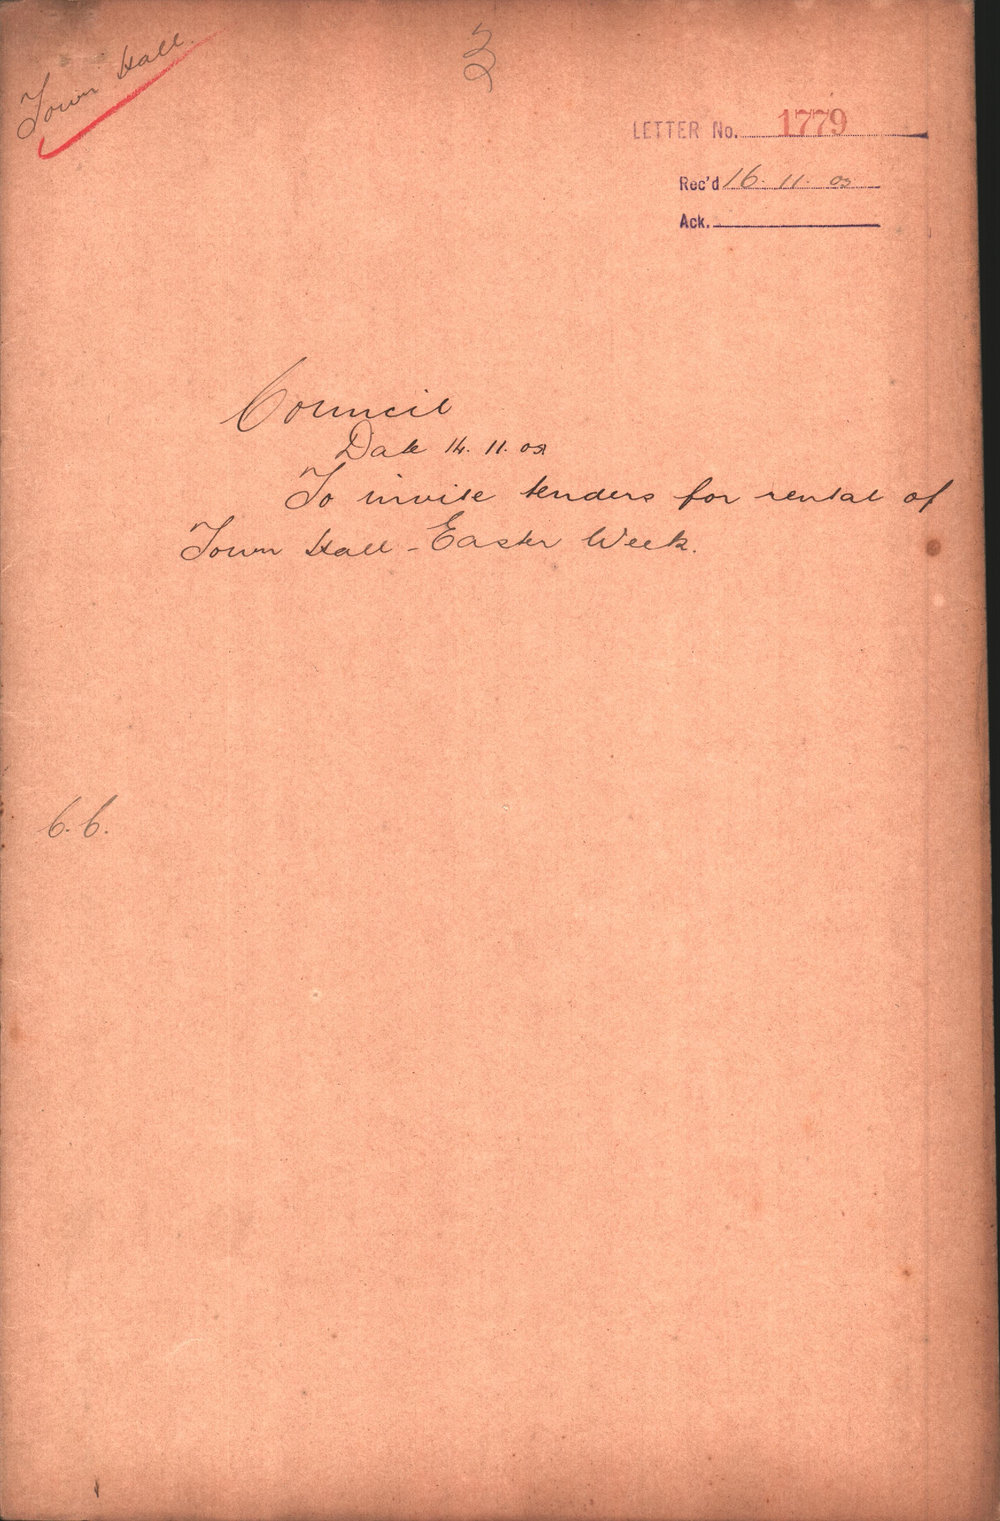 Town Hall.
3
LETTER No. 1779
Rec'd 16. 11. 03
Ack.
Council
Date 14. 11. 03
To invite tenders for rental of
Town Hall - Easter Week.
6. 6.